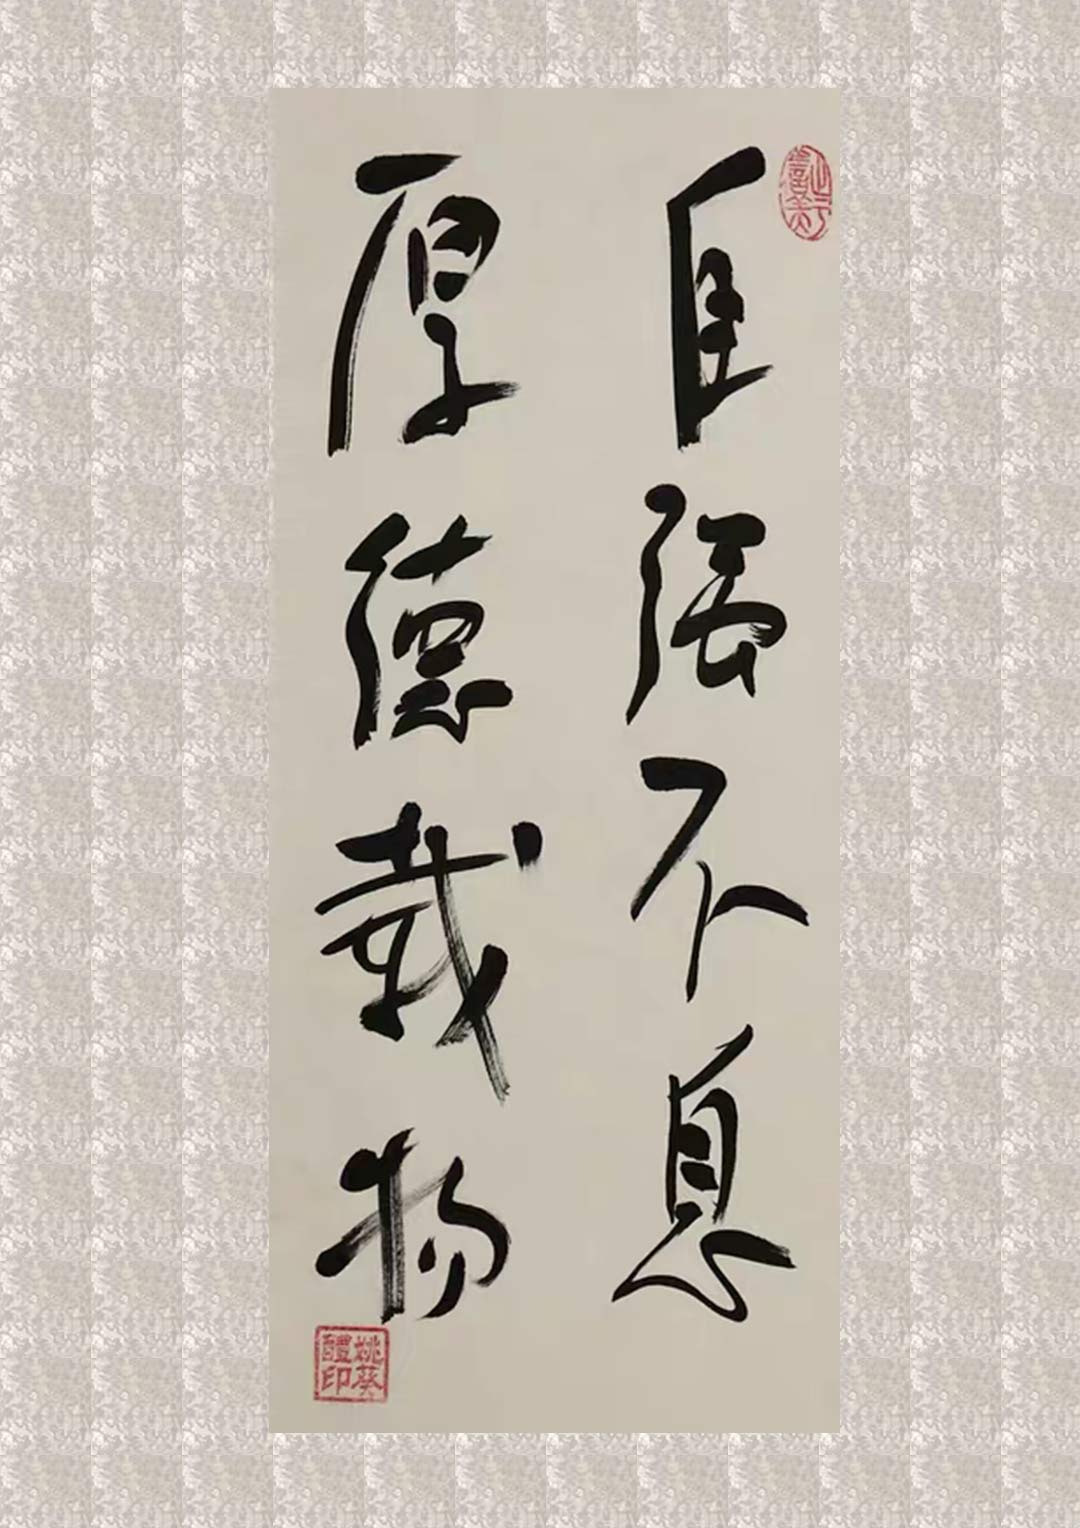 自强不息
厚德载物
姚葵醴印